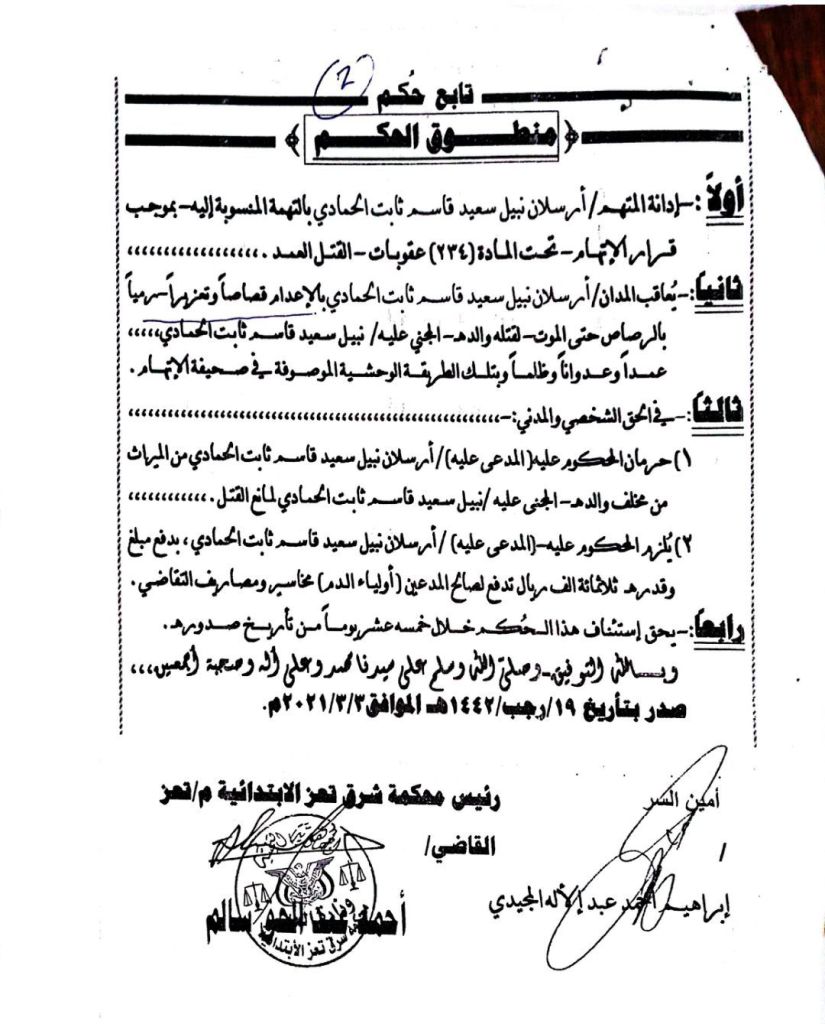 2
تابع حُكم
﴿ منطـــوق الحكـــم ﴾
أولاً :-إدانة المتهم/أرسلان نبيل سعيد قاسم ثابت الحمادي بالتهمة المنسوبة إليه-بموجب
قرار الإتهام-تحت المادة (٢٣٤) عقوبات-القتل العمد .,,,,,,,,,,,,,,,,,
ثانياً :-يُعاقب المدان/أرسلان نبيل سعيد قاسم ثابت الحمادي بالإعدام قصاصاً وتعزيراً-رمياً
بالرصاص حتى الموت-لقتله والده-المجني عليه/ نبيل سعيد قاسم ثابت الحمادي,,,,,
عمداً وعدواناً وظلماً وبتلك الطريقة الوحشية الموصوفة في صحيفة الإتهام .
ثالثاً :-في الحق الشخصي والمدني:-,,,,,,,,,,,,,,,,,,,,,,,,,,,,,,,,,,,,,,,,,,,,,,
١) حرمان المحكوم عليه(المدعى عليه)/أرسلان نبيل سعيد قاسم ثابت الحمادي من الميراث
من مخلف والده-المجنى عليه /نبيل سعيد قاسم ثابت الحمادي لمانع القتل .,,,,,,,,,,,,
٢) يُلزم المحكوم عليه-(المدعى عليه) /أرسلان نبيل سعيد قاسم ثابت الحمادي ، بدفع مبلغ
وقدره ثلاثمائة الف ريال تدفع لصالح المدعين (أولياء الدم) مخاسير ومصاريف التقاضي .
رابعاً :-يحق إستئناف هذا الحُكم خلال خمسه عشر يوماً من تأريخ صدوره.
وبالله التوفيق-وصلى الله وسلم على سيدنا محمد وعلى أله وصحبة أجمعين,,,
صدر بتأريخ ١٩/رجب/١٤٤٢هـ الموافق٢٠٢١/٣/٣م.
أمين السر
رئيس محكمة شرق تعز الابتدائية م/تعز
/
القاضي/
إبراهيم أحمد عبدالأله المجيدي
أحمد سالم
شرق تعز الأبتدائية